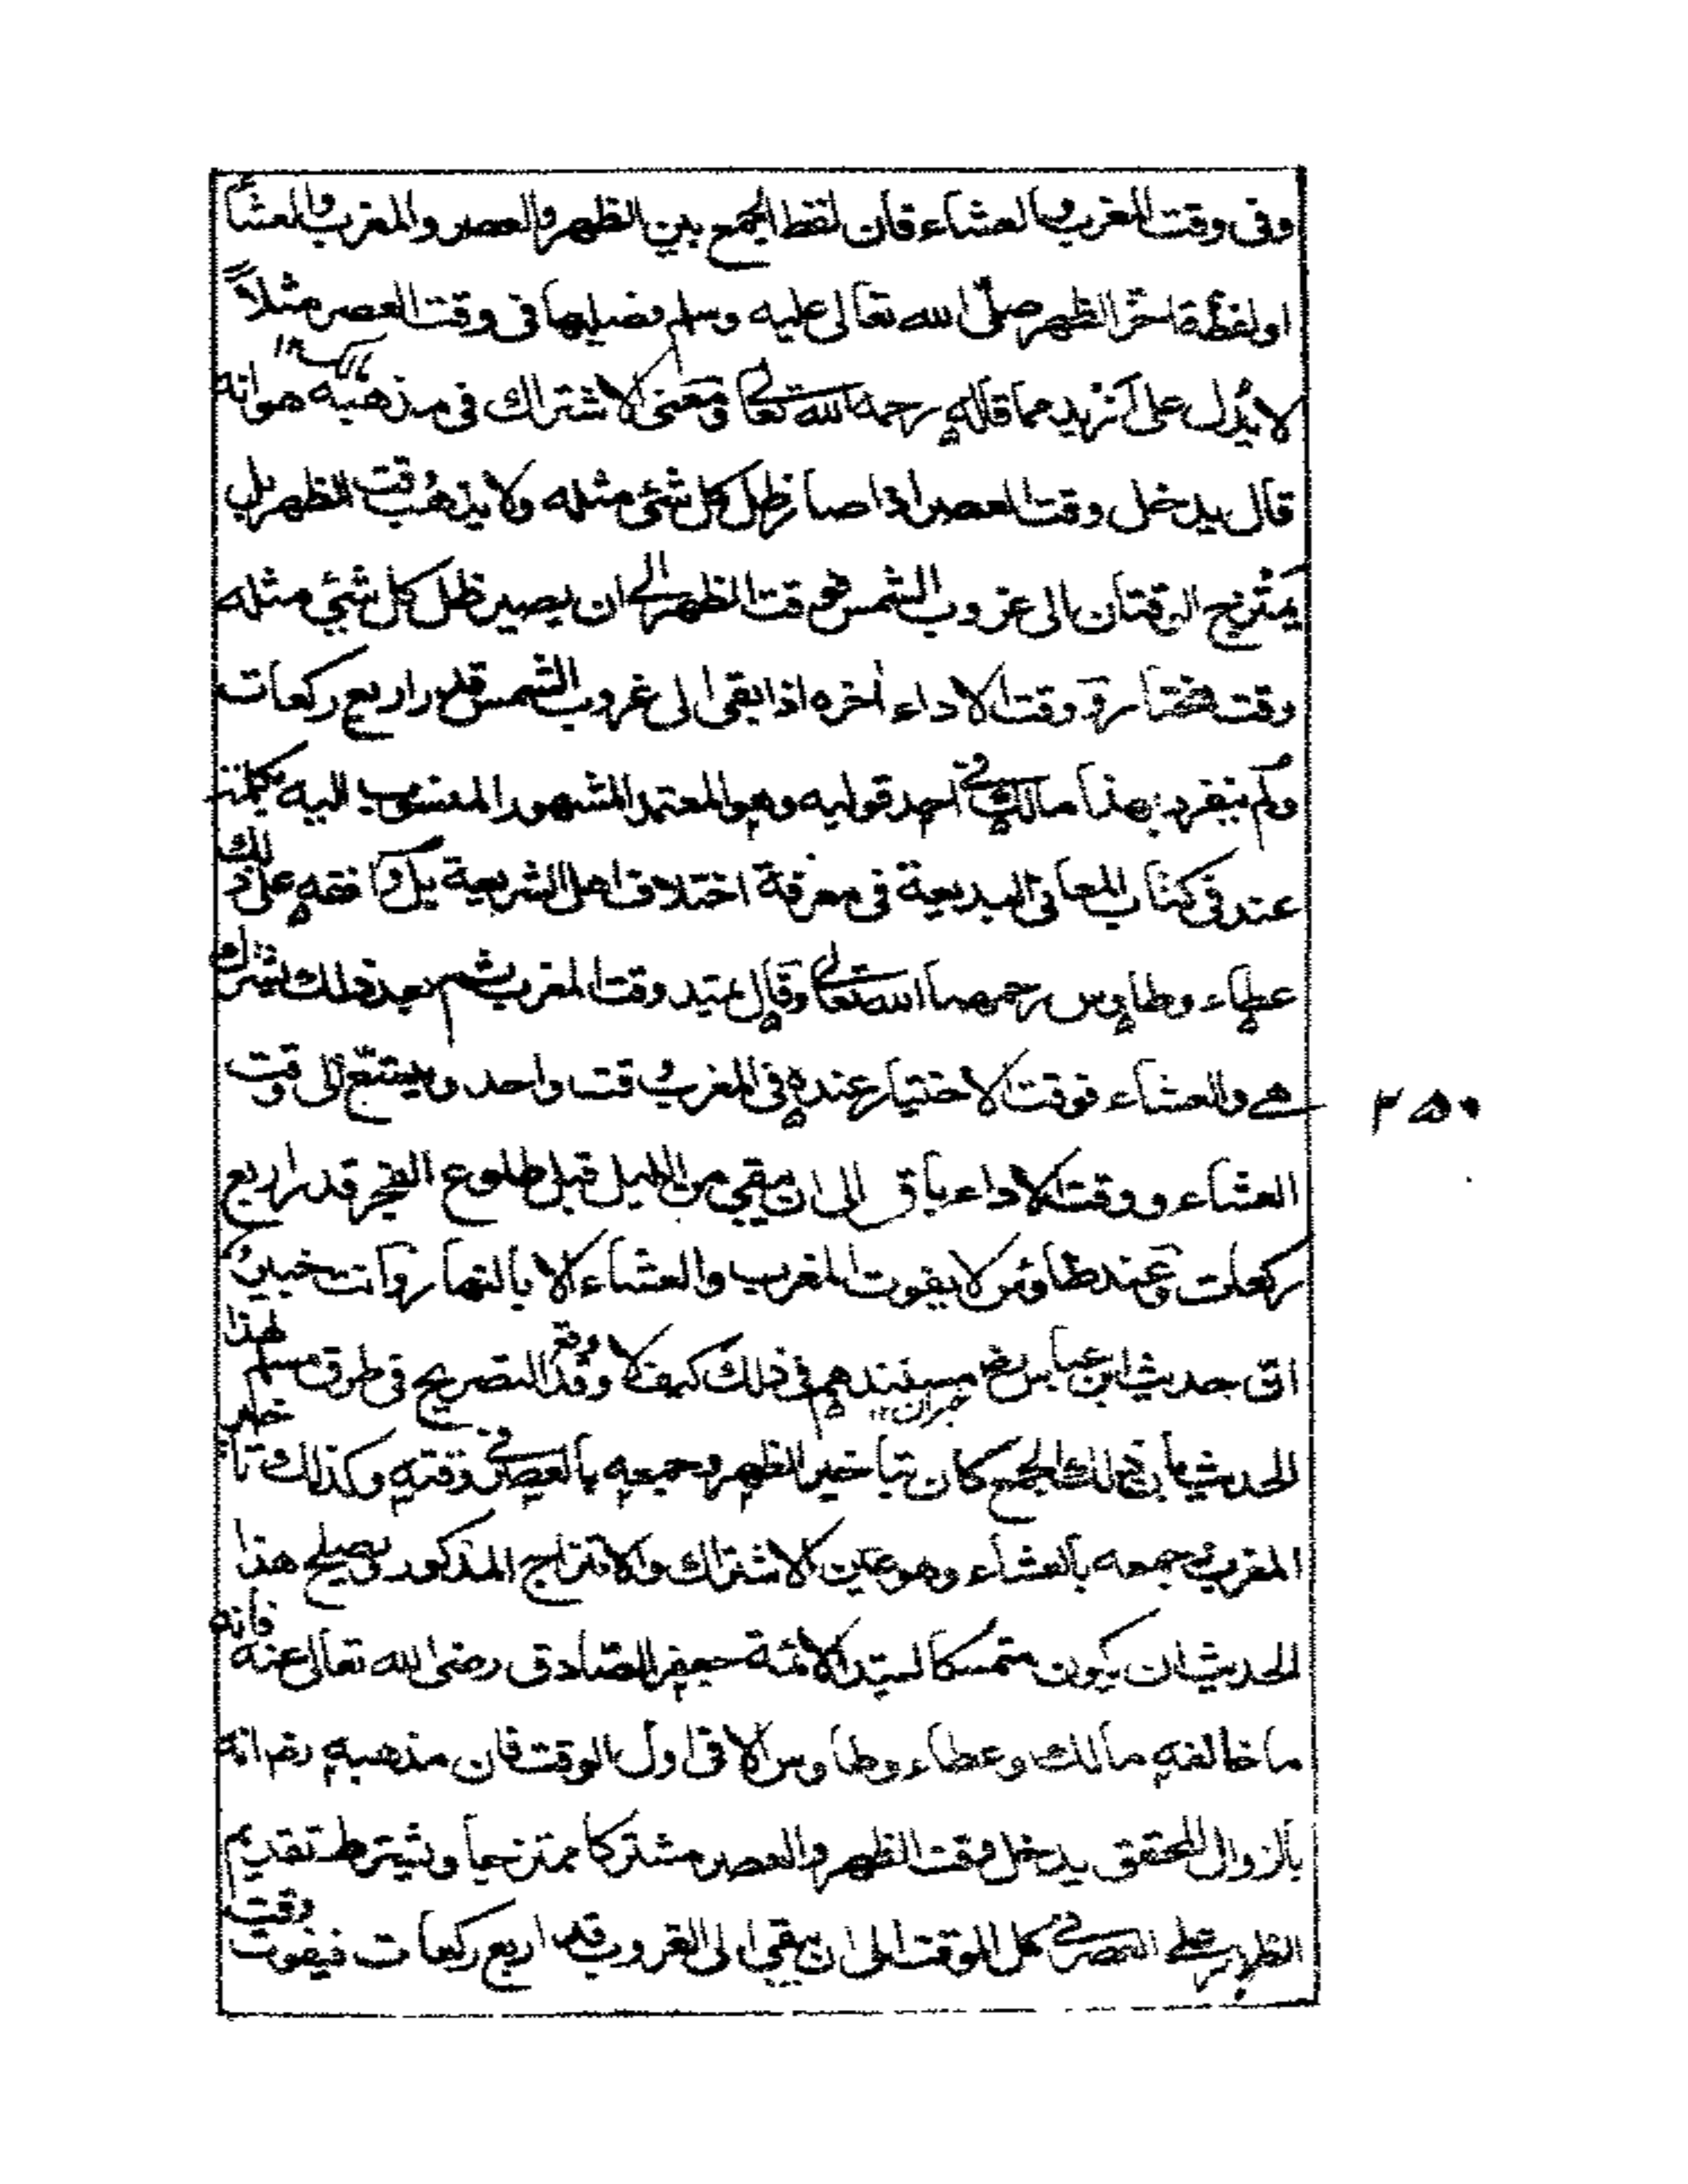 وفى وقت المغرب والعشاء فان لفظ الجمع بين الظهر والعصر والمغرب والعشاء
او لفظة فاخر الظهر صلى الله تعالى عليه وسلم فصليها فى وقت العصر مثلاً
لا يدل على ازيد مما قاله رحمه الله تعالى ومعنى الاشتراك فى مذهبه هو انه
مالك ١٢
قال يدخل وقت العصر اذا صار ظل كل شئ مثله ولا يذهب وقت الظهر بل
يمتزج الوقتان الى غروب الشمس فوقت الظهر الى ان يصير ظل كل شئ مثله
وقت مختار ووقت الاداء اخره اذا بقى الى غروب الشمس قدر اربع ركعات
ولم ينفرد بهذا مالك فى احد قوليه وهو المعتمد المشهور المنسوب اليه
عند فى كتاب المعانى البديعة فى معرفة اختلاف اهل الشريعة بل وافقه على ذلك
عطاء وطاوس رحمهما الله تعالى وقال يمتد وقت المغرب ثم بعد ذلك يشترك
هى والعشاء فوقت الاختيار عنده فى المغرب وقت واحد ويتسع الى وقت
٢٥٠
العشاء ووقت الاداء باق الى ان يبقى من الليل قبل طلوع الفجر قدر اربع
ركعات وعند طاوس لا يفوت المغرب والعشاء الا بالنهار وانت خبير
انى حديث ابن عباس رضـ مستندهم فى ذلك كيف لا وقد وقع التصريح فى طرق مسلم لهذا
الحديث بان ذلك الجمع كان بتاخير الظهر وجمعه بالعصر فى وقته وكذلك تاخير
المغرب وجمعه بالعشاء وهو عين الاشتراك والامتزاج المذكور ويصلح هذا
الحديث ان يكون متمسكا لسيد الائمة جعفر الصادق رضى الله تعالى عنه فانه
ما خالفه مالك وعطاء وطاوس الا فى اول الوقت فان مذهبه رضـ انه
بالزوال المحقق يدخل وقت الظهر والعصر مشتركا ممتزجا ويشترط تقديم
الظهر على العصر فى كل الوقت الى ان يبقى الى الغروب قدر اربع ركعات فيفوت وقت